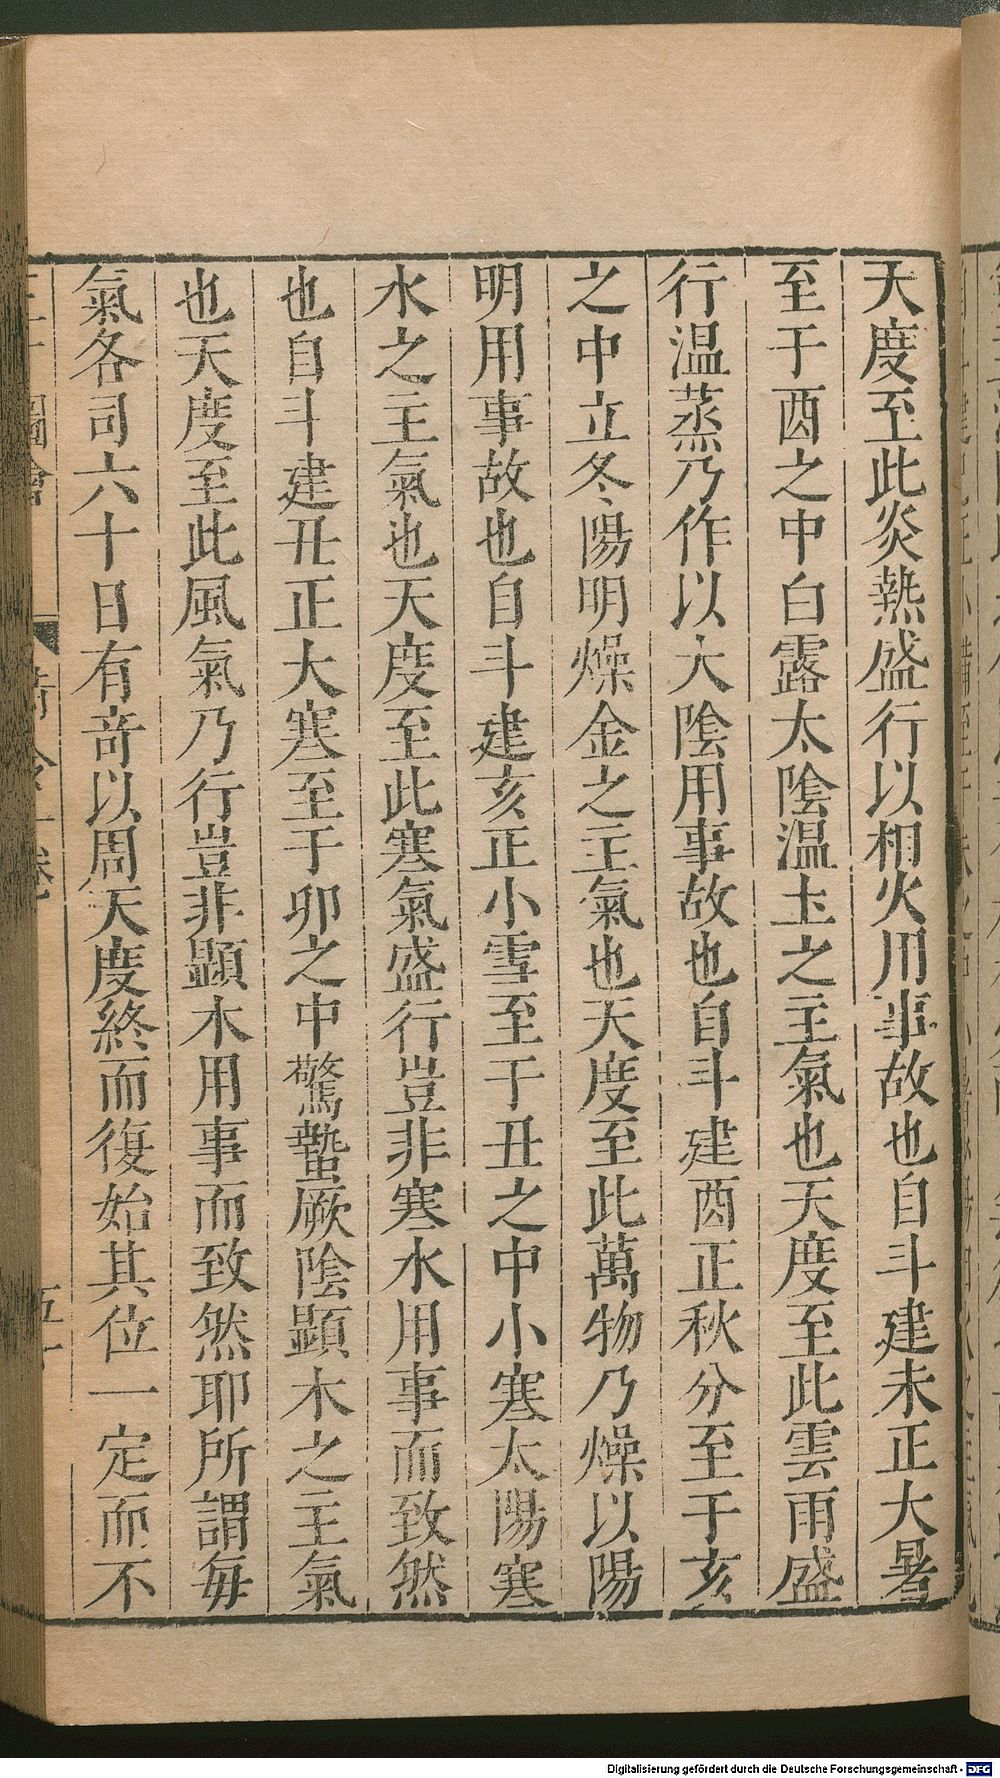 天度至此炎熱盛行以相火用事故也自斗建未正大暑
至于酉之中白露太陰温土之主氣也天度至此雲雨盛
行温蒸乃作以大陰用事故也自斗建酉正秋分至于亥
之中立冬陽明燥金之主氣也天度至此萬物乃燥以陽
明用事故也自斗建亥正小雪至于丑之中小寒太陽寒
水之主氣也天度至此寒氣盛行豈非寒水用事而致然
也自斗建丑正大寒至于卯之中驚蟄厥陰顯木之主氣
也天度至此風氣乃行豈非顯木用事而致然耶所謂每
氣各司六十日有奇以周天度終而復始其位一定而不
Digitalisierung gefördert durch die Deutsche Forschungsgemeinschaft - DFG